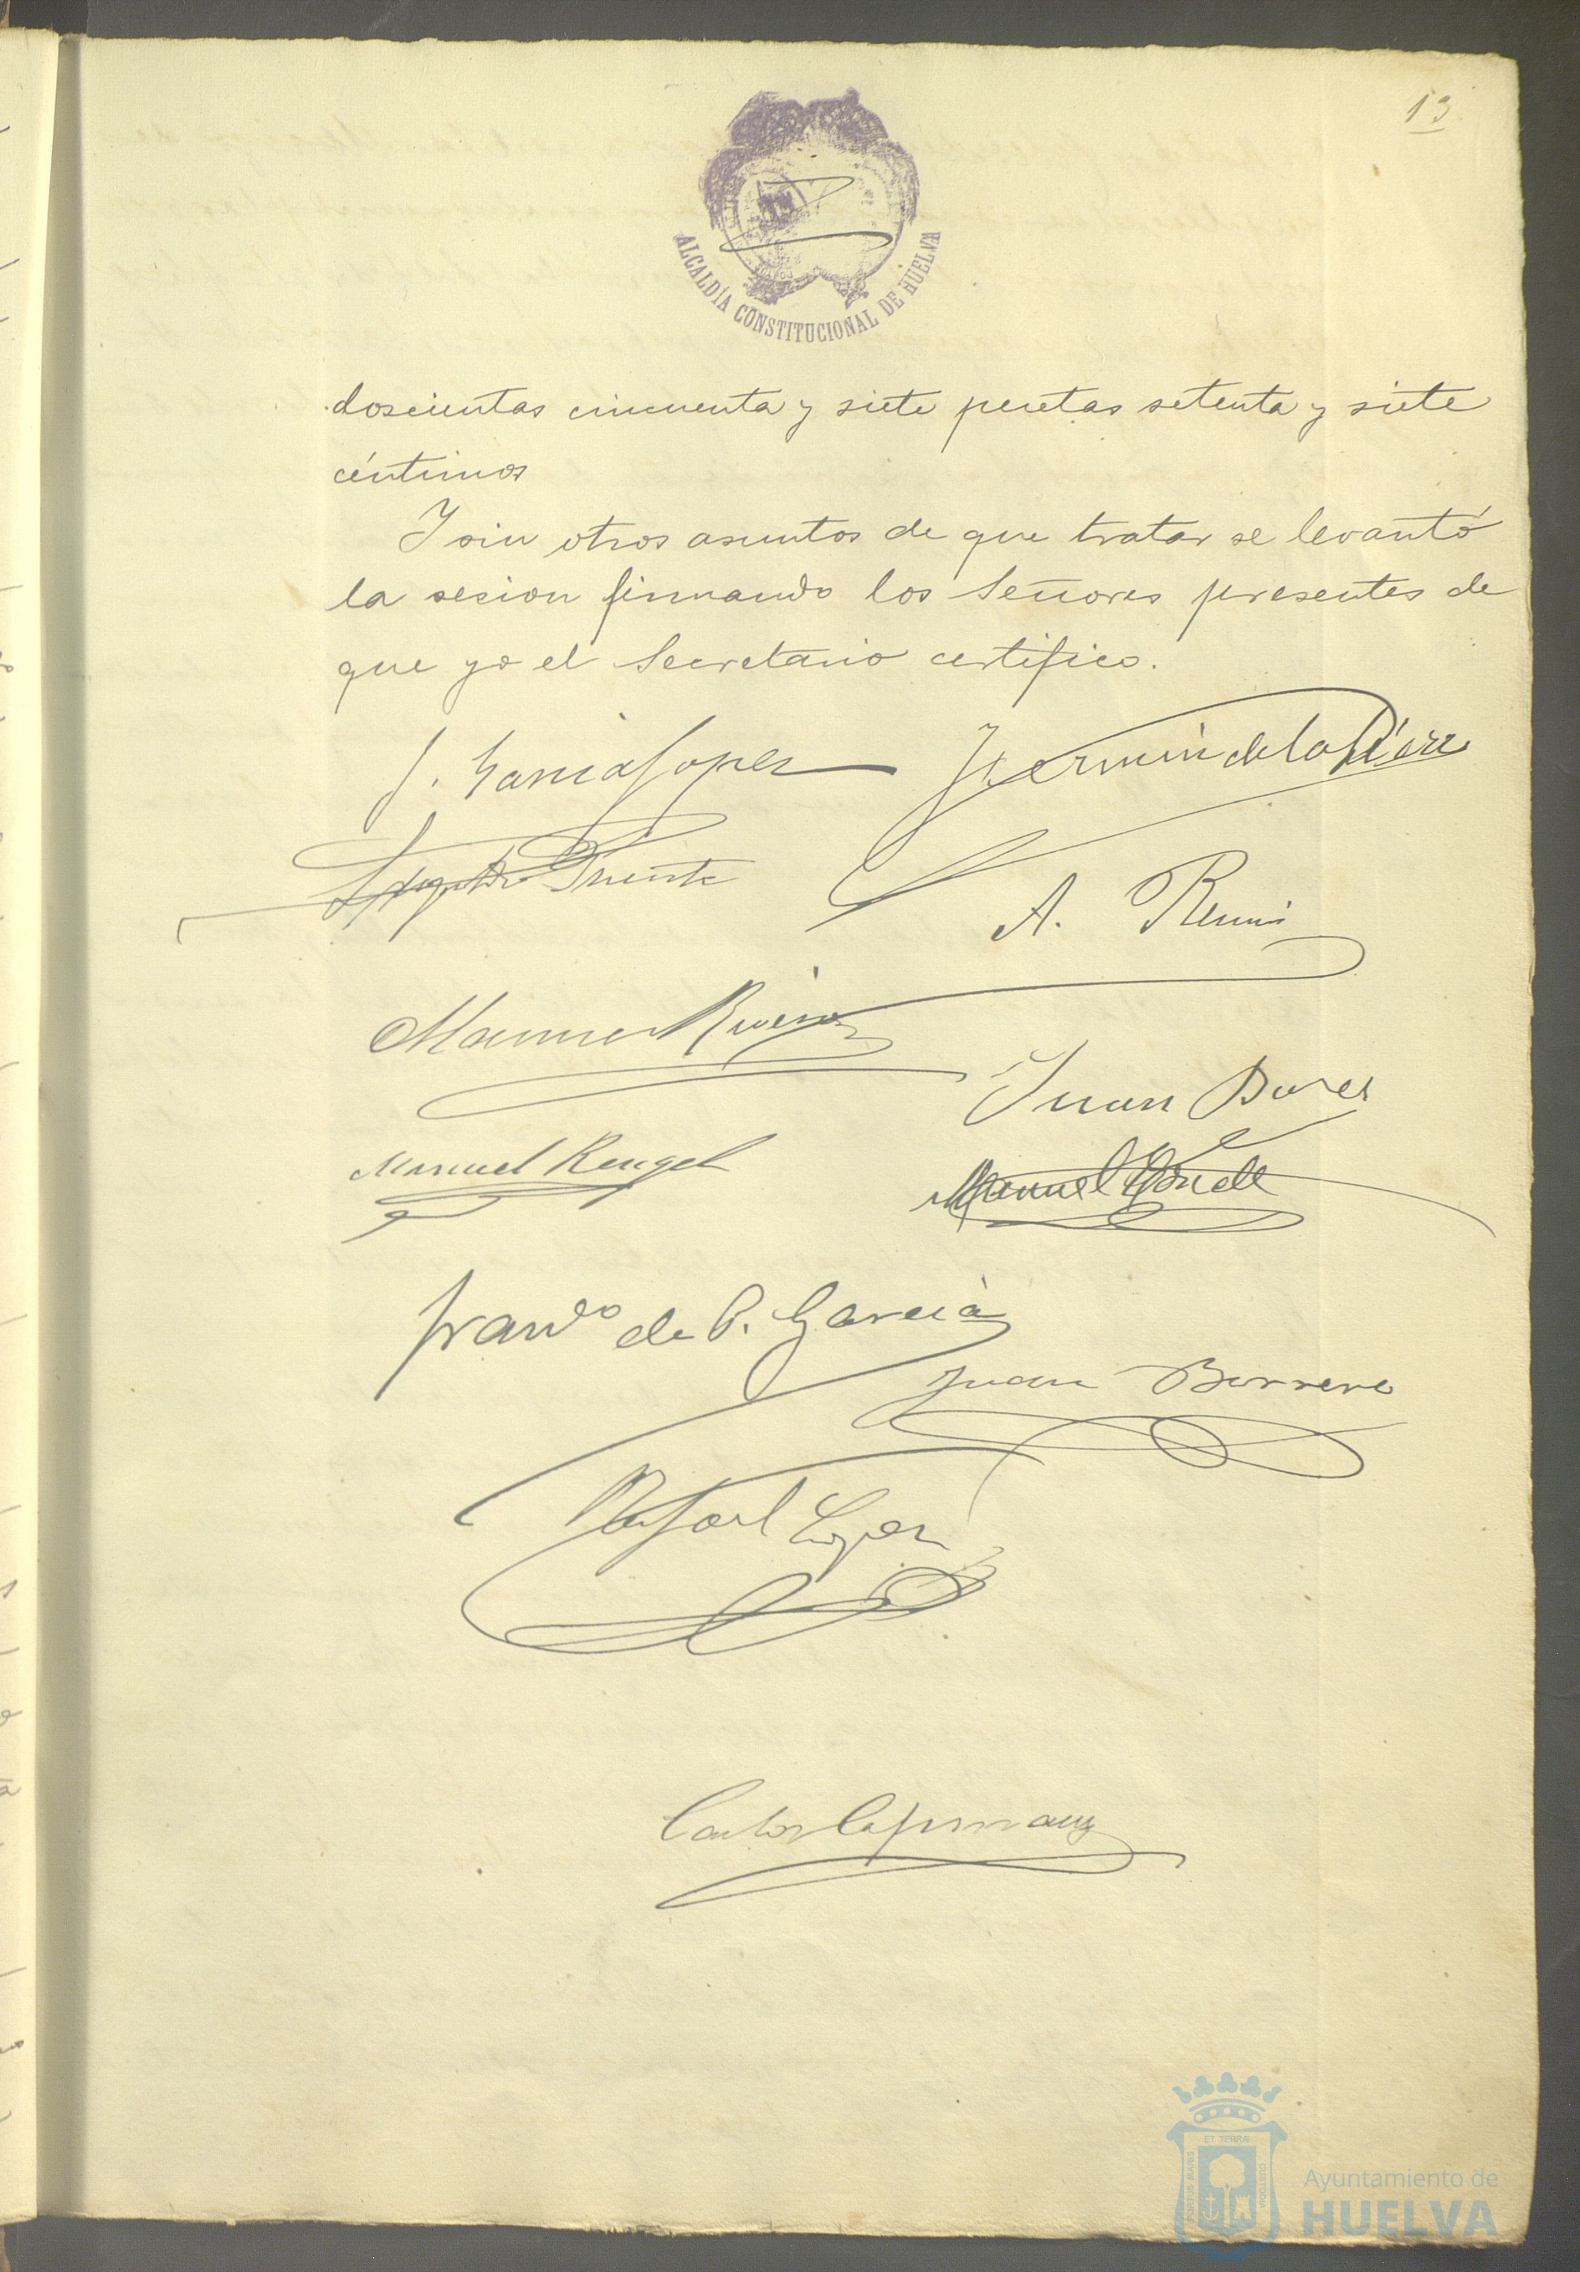 13
ALCALDÍA CONSTITUCIONAL DE HUELVA
doscientas cincuenta y siete pesetas setenta y siete
céntimos
Y sin otros asuntos de que tratar se levantó
la sesion firmando los Señores presentes de
que yo el Secretario certifico.
J. Garcia Lopez
Fermín de la
A.
Manuel
Juan
Manuel Rengel
Manuel Conde
Franco de P. García
Juan Borrero
Rafael Lopez
Carlos
ET TERRÆ
PORTUS MARIS
CUSTODIA
Ayuntamiento de
HUELVA